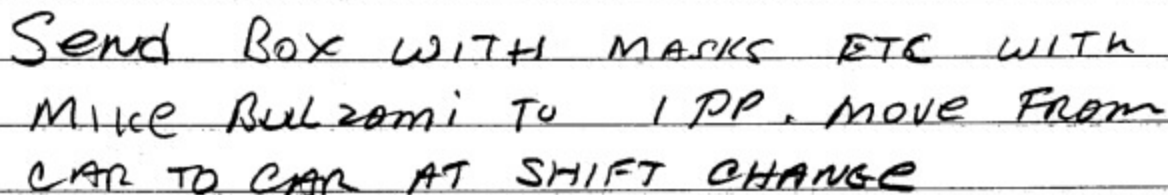 Send BOX WITH MASKS ETC WITH
MIKE BULZOMI TO 1 PP. MOVE FROM
CAR TO CAR AT SHIFT CHANGE